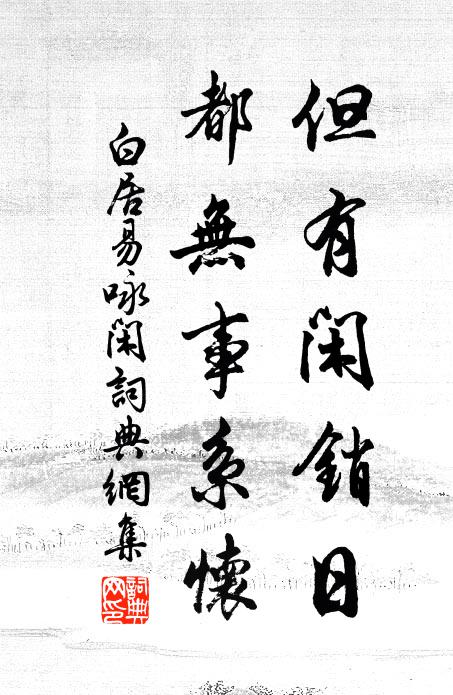 但有閑銷日
都無事系懷
白居易詠閑詞典網集
詞典
网印